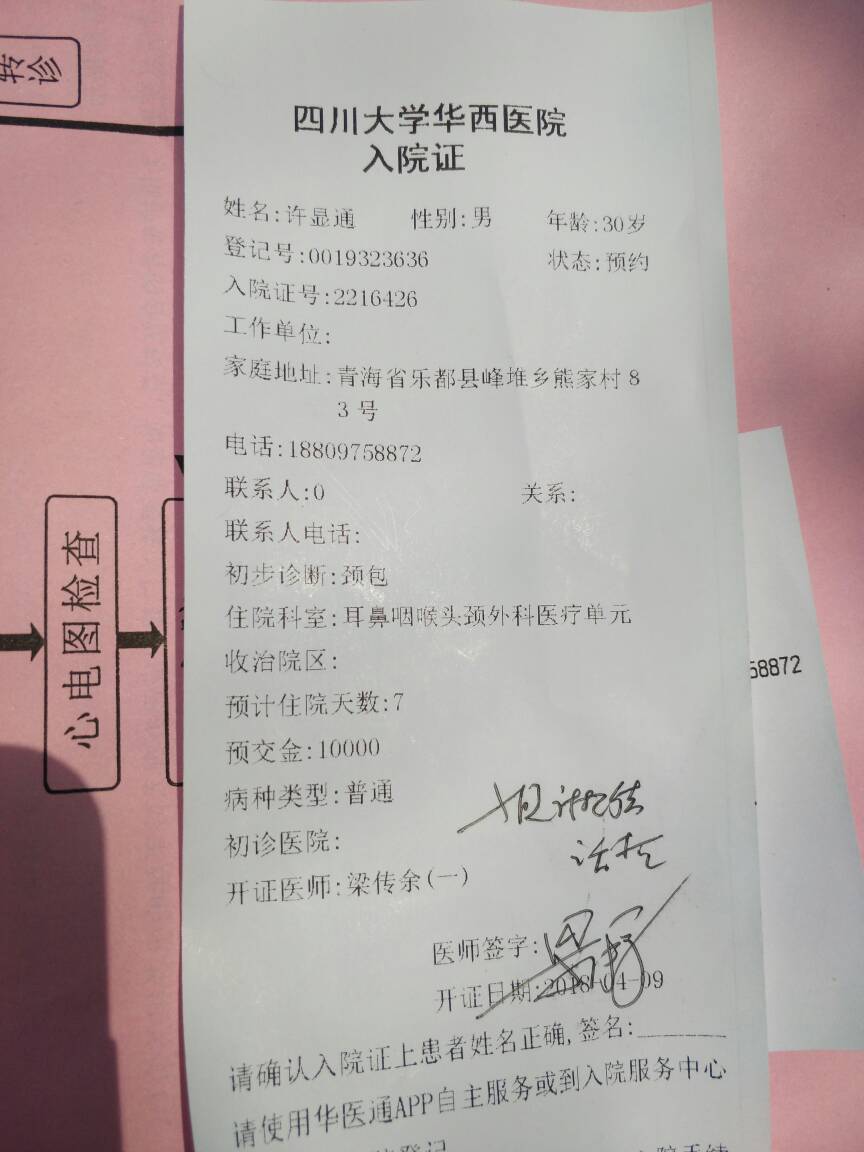 转诊
四川大学华西医院
入院证
姓名:许显通 性别:男 年龄:30岁
登记号:0019323636 状态:预约
入院证号:2216426
工作单位:
家庭地址:青海省乐都县峰堆乡熊家村8
3号
电话:18809758872
联系人:0 关系:
联系人电话:
初步诊断:颈包
住院科室:耳鼻咽喉头颈外科医疗单元
收治院区:
预计住院天数:7
预交金:10000
病种类型:普通
初诊医院:
开证医师:梁传余(一)
医师签字:
开证日期:2018-04-09
请确认入院证上患者姓名正确,签名:
请使用华医通APP自主服务或到入院服务中心
心电图检查
58872